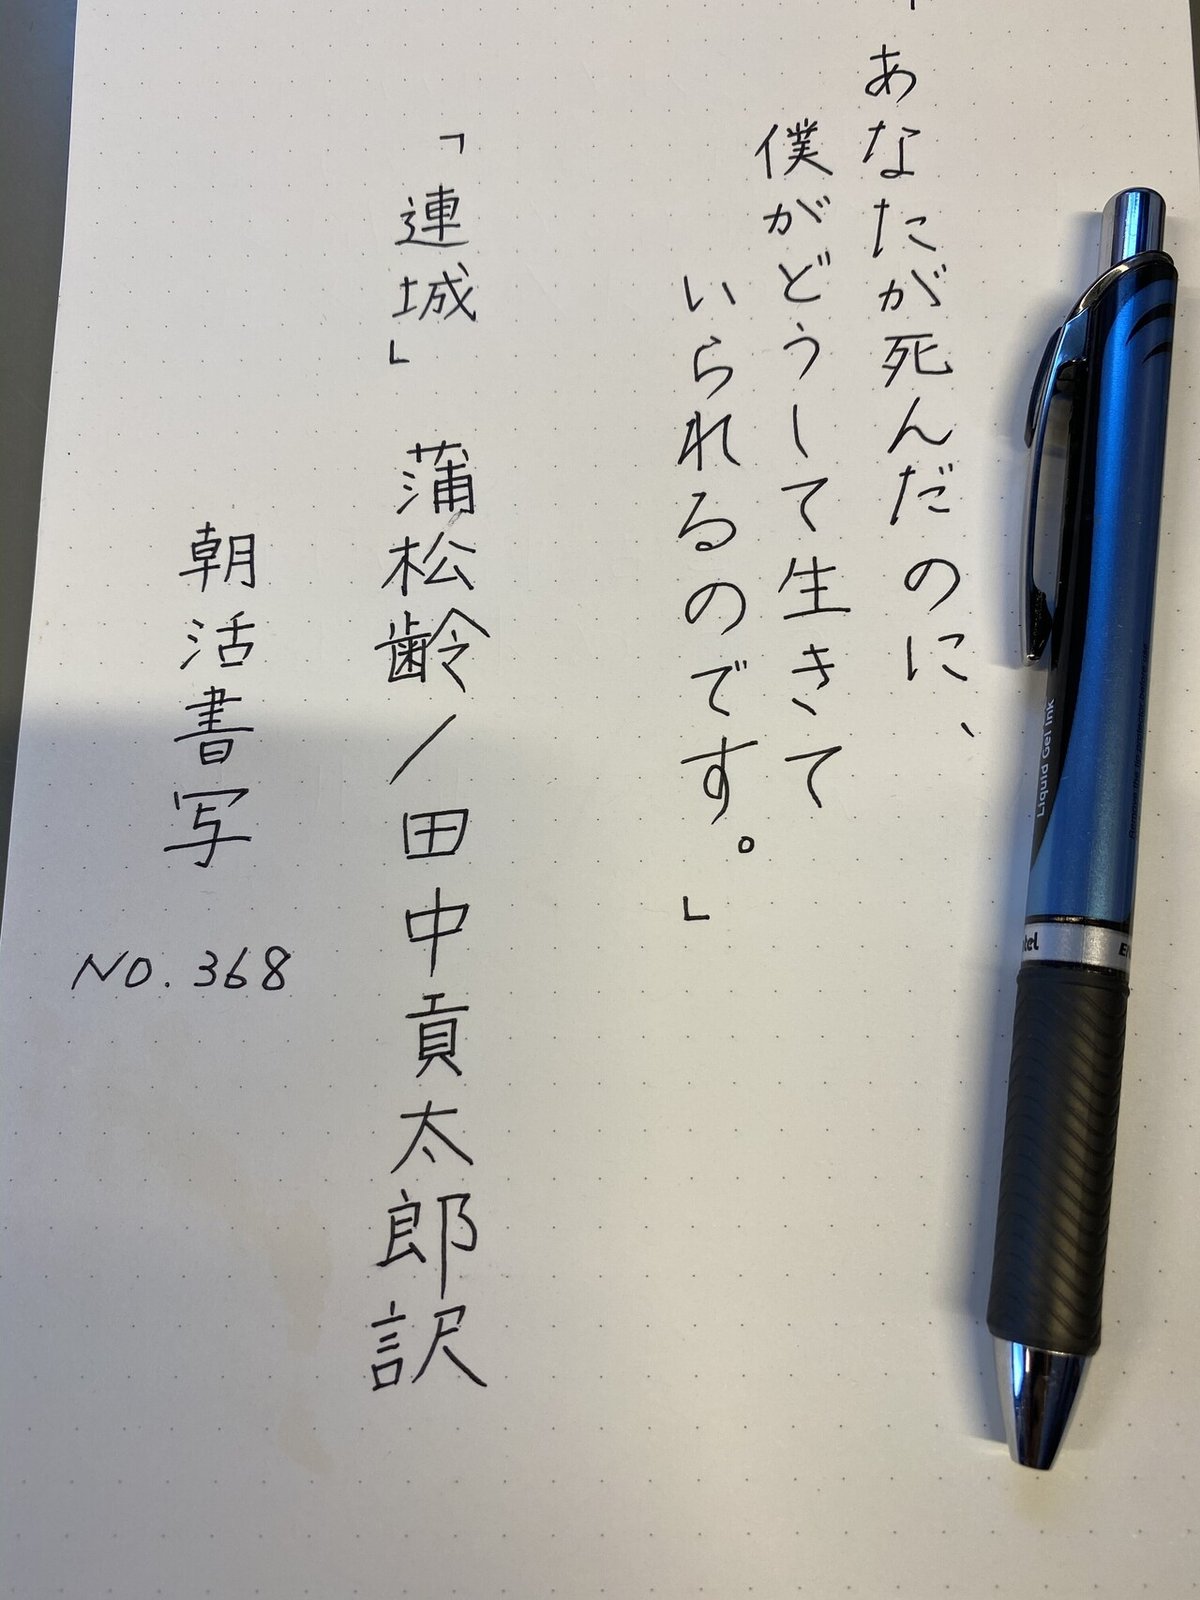 あなたが死んだのに、
僕がどうして生きて
いられるのです。」
「連城」 蒲松齢/田中貢太郎訳
朝活書写
NO.368
Liquid Gel Ink